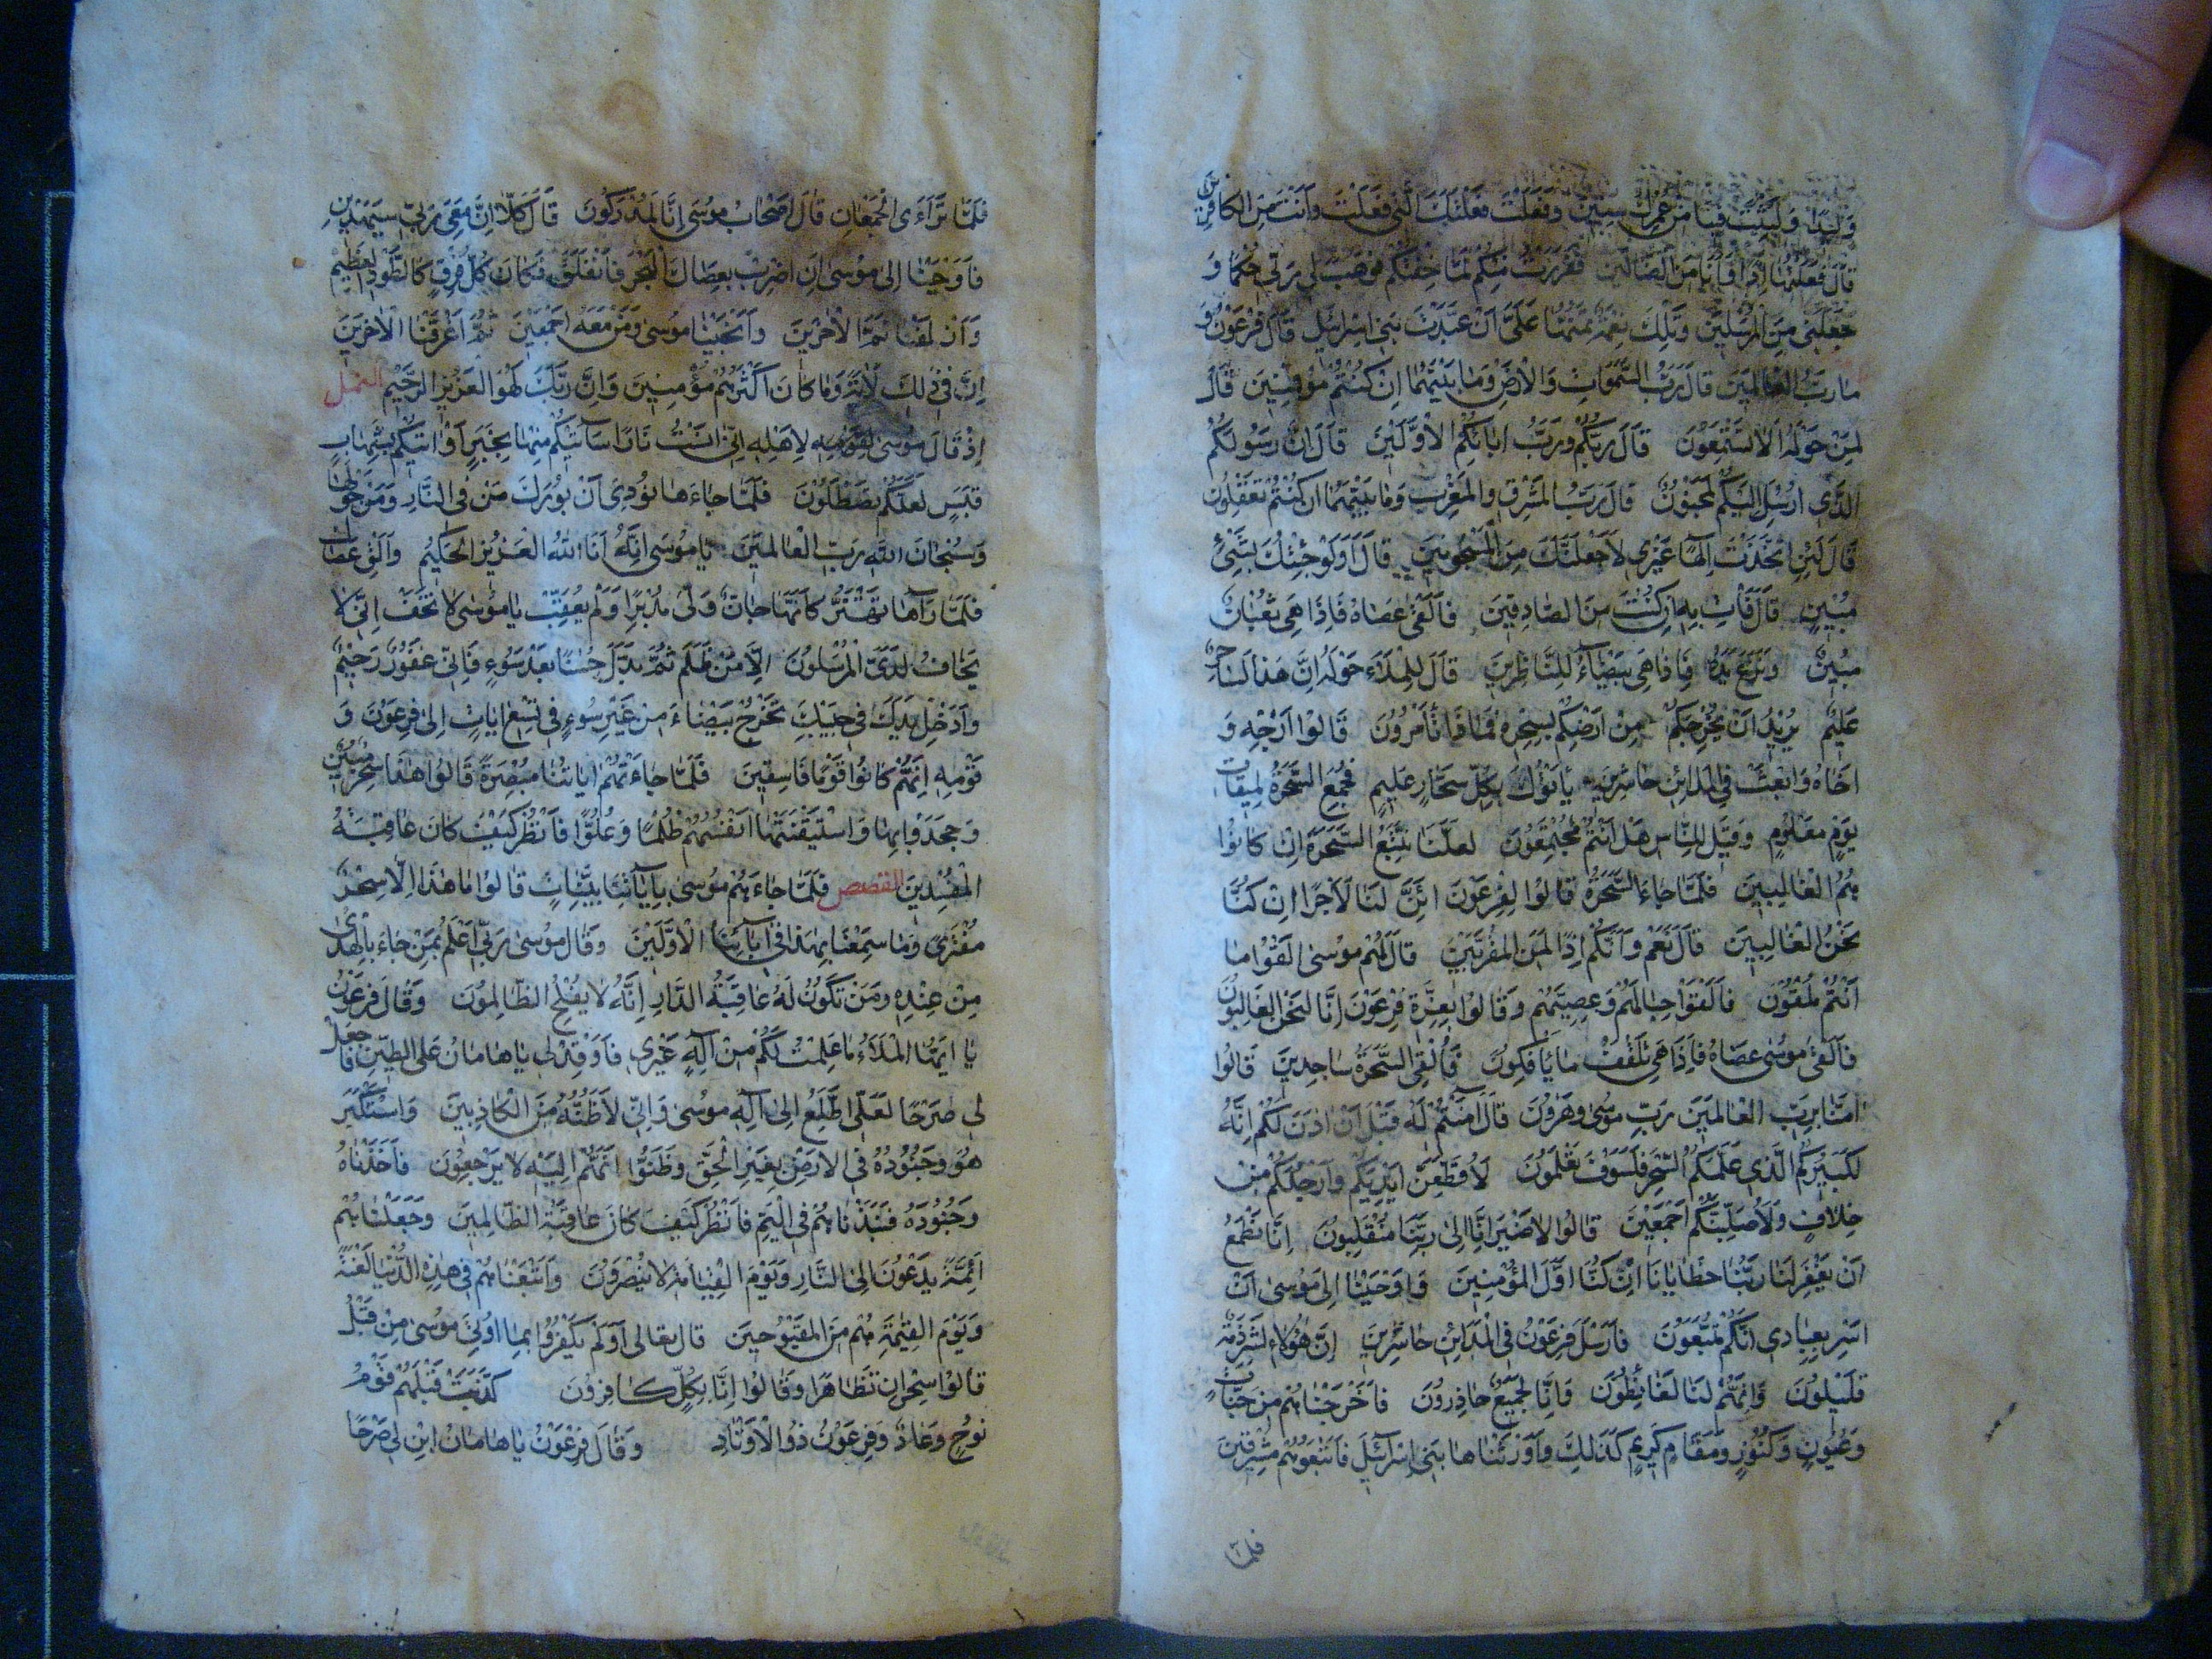 وَليدًا وَلَبِثْتَ فينا مِنْ عُمُرِكَ سِنينَ وفَعَلْتَ فَعْلَتَكَ الَّتي فَعَلْتَ وَاَنْتَ مِنَ الكافرين
قالَ فَعَلْتُها اِذًا وَاَنَا مِنَ الضّالّينَ فَفَرَرْتُ مِنْكُمْ لَمّا خِفْتُكُمْ فَوَهَبَ لي رَبّي حُكْمًا وَ
جَعَلَني مِنَ المُرْسَلينَ وَتِلْكَ نِعْمَةٌ تَمُنُّها عَلَيَّ اَنْ عَبَّدْتَ بَني اِسْرائيلَ قالَ فِرْعَوْنُ وَ
ما رَبُّ العالَمينَ قالَ رَبُّ السَّمَواتِ وَالْاَرْضِ وَما بَيْنَهُما اِنْ كُنْتُمْ موقِنينَ قالَ
لِمَنْ حَوْلَهُ اَلا تَسْتَمِعُونَ قالَ رَبُّكُمْ ورَبُّ ابائِكُمُ الْاَوَّلينَ قالَ اِنَّ رَسُولَكُمُ
الَّذي اُرْسِلَ اِلَيْكُمْ لَمَجْنُونٌ قالَ رَبُّ المَشْرِقِ والمَغْرِبِ وَما بَيْنَهُما اِن كُنْتُمْ تَعْقِلُون
قالَ لَئِنِ اتَّخَذْتَ اِلهًا غَيْري لَاَجْعَلَنَّكَ مِنَ الْمَسْجُونينَ قالَ اَوَلَوْ جِئْتُكَ بِشَيْءٍ
مُبينٍ قالَ فَأْتِ بِهِ اِنْ كُنْتَ مِنَ الصّادِقينَ فَاَلْقى عَصاهُ فَاِذا هِيَ ثُعْبانٌ
مُبينٌ وَنَزَعَ يَدَهُ فَاِذا هِيَ بَيْضاءُ لِلنّاظِرينَ قالَ لِلْمَلَاءِ حَوْلَهُ اِنَّ هَذا لَساحِرٌ
عَليمٌ يُريدُ اَنْ يُخْرِجَكُمْ مِنْ اَرْضِكُمْ بِسِحْرِهِ فَماذا تَأْمُرُونَ قالُوا اَرْجِهِ وَ
اَخاهُ وَابْعَثْ فِي المَدائِنِ حاشِرينَ يَأْتُوكَ بِكُلِّ سَحّارٍ عَليمٍ فَجُمِعَ السَّحَرَةُ لِميقاتِ
يَوْمٍ مَعْلُومٍ وَقيلَ لِلنّاسِ هَلْ اَنْتُمْ مُجْتَمِعُونَ لَعَلَّنا نَتَّبِعُ السَّحَرَةَ اِنْ كانُوا
هُمُ الْغالِبينَ فَلَمّا جاءَ السَّحَرَةُ قالُوا لِفِرْعَوْنَ ائِنَّ لَنا لَاَجْرًا اِنْ كُنّا
نَحْنُ الْغالِبينَ قالَ نَعَمْ وَاِنَّكُمْ اِذًا لَمِنَ المُقَرَّبينَ قالَ لَهُمْ مُوسى اَلْقُوا ما
اَنْتُمْ مُلْقُونَ فَاَلْقَوْا حِبالَهُمْ وَعِصِيَّهُمْ وَقالُوا بِعِزَّةِ فِرْعَوْنَ اِنّا لَنَحْنُ الغالِبُونَ
فَاَلْقى مُوسى عَصاهُ فَاِذا هِيَ تَلْقَفُ ما يَأْفِكُونَ فَاُلْقِيَ السَّحَرَةُ ساجِدينَ قالُوا
امَنّا بِرَبِّ الْعالَمينَ رَبِّ مُوسى وَهرُونَ قالَ آمَنْتُمْ لَهُ قَبْلَ اَنْ اذَنَ لَكُمْ اِنَّهُ
لَكَبيرُكُمُ الَّذي عَلَّمَكُمُ السِّحْرَ فَلَسَوْفَ تَعْلَمُونَ لَاُقَطِّعَنَّ اَيْدِيَكُمْ وَاَرْجُلَكُمْ مِنْ
خِلافٍ وَلَاُصَلِّبَنَّكُمْ اَجْمَعينَ قالُوا لا ضَيْرَ اِنّا اِلى رَبِّنا مُنْقَلِبُونَ اِنّا نَطْمَعُ
اَنْ يَغْفِرَ لَنا رَبُّنا خَطايانا اَنْ كُنّا اَوَّلَ المُؤْمِنينَ وَاَوْحَيْنا اِلى مُوسى اَنْ
اَسْرِ بِعِبادي اِنَّكُمْ مُتَّبَعُونَ فَاَرْسَلَ فِرْعَوْنُ فِي الْمَدائِنِ حاشِرينَ اِنَّ هؤُلاءِ لَشِرْذِمَةٌ
قَليلُونَ وَاِنَّهُمْ لَنا لَغائِظُونَ وَاِنّا لَجَميعٌ حاذِرُونَ فَاَخْرَجْناهُمْ مِنْ جَنّاتٍ
وَعُيُونٍ وَكُنُوزٍ وَمَقامٍ كَريمٍ كَذلِكَ وَاَوْرَثْناها بَني اِسْرائيلَ فَاَتْبَعُوهُمْ مُشْرِقينَ
فلمّا
فَلَمّا تَراءَى الْجَمْعانِ قالَ اَصْحابُ مُوسَى اِنّا لَمُدْرَكُونَ قالَ كَلّا اِنَّ مَعِيَ رَبّي سَيَهْدينِ
فَاَوْحَيْنا اِلى مُوسى اَنِ اضْرِبْ بِعَصاكَ الْبَحْرَ فَانْفَلَقَ فَكانَ كُلُّ فِرْقٍ كَالطَّوْدِ الْعَظيمِ
وَاَزْلَفْنا ثَمَّ الْاخَرينَ وَاَنْجَيْنا مُوسى وَمَنْ مَعَهُ اَجْمَعينَ ثُمَّ اَغْرَقْنَا الْاخَرينَ
اِنَّ في ذلِكَ لَايَةً وَما كانَ اَكْثَرُهُمْ مُؤْمِنينَ وَاِنَّ رَبَّكَ لَهُوَ العَزيزُ الرَّحيمُ النمل
اِذْ قالَ مُوسى لِاَهْلِهِ اِنّي انَسْتُ نارًا سَاتيكُمْ مِنْها بِخَبَرٍ اَوْ اتيكُمْ بِشِهابٍ
قَبَسٍ لَعَلَّكُمْ تَصْطَلُونَ فَلَمّا جاءَها نُودِيَ اَنْ بُورِكَ مَنْ فِي النّارِ وَمَنْ حَوْلَها
وَسُبْحانَ اللهِ رَبِّ الْعالَمينَ يا مُوسى اِنَّهُ اَنَا اللهُ الْعَزيزُ الْحَكيمُ وَاَلْقِ عَصاكَ
فَلَمّا رَاها تَهْتَزُّ كَاَنَّها جانٌّ وَلّى مُدْبِرًا وَلَمْ يُعَقِّبْ يا مُوسى لا تَخَفْ اِنّي لا
يَخافُ لَدَيَّ الْمُرْسَلُونَ اِلّا مَنْ ظَلَمَ ثُمَّ بَدَّلَ حُسْنًا بَعْدَ سُوءٍ فَاِنّي غَفُورٌ رَحيمٌ
وَاَدْخِلْ يَدَكَ في جَيْبِكَ تَخْرُجْ بَيْضاءَ مِنْ غَيْرِ سُوءٍ في تِسْعِ اياتٍ اِلى فِرْعَوْنَ وَ
قَوْمِهِ اِنَّهُمْ كانُوا قَوْمًا فاسِقينَ فَلَمّا جاءَتْهُمْ اياتُنا مُبْصِرَةً قالُوا هذا سِحْرٌ مُبينٌ
وَجَحَدُوا بِها وَاسْتَيْقَنَتْها اَنْفُسُهُمْ ظُلْمًا وَعُلُوًّا فَانْظُرْ كَيْفَ كانَ عاقِبَةُ
الْمُفْسِدينَ القصص فَلَمّا جاءَهُمْ مُوسى بِاياتِنا بَيِّناتٍ قالُوا ما هذا اِلّا سِحْرٌ
مُفْتَرًى وَما سَمِعْنا بِهذا في آبائِنَا الْاَوَّلينَ وَقالَ مُوسى رَبّي اَعْلَمُ بِمَنْ جاءَ بِالْهُدى
مِنْ عِنْدِهِ وَمَنْ تَكُونُ لَهُ عاقِبَةُ الدّارِ اِنَّهُ لا يُفْلِحُ الظّالِمُونَ وَقالَ فِرْعَوْنُ
يا اَيُّهَا الْمَلَاءُ ما عَلِمْتُ لَكُمْ مِنْ اِلهٍ غَيْري فَاَوْقِدْ لي يا هامانُ عَلَى الطّينِ فَاجْعَلْ
لي صَرْحًا لَعَلّي اَطَّلِعُ اِلى اِلهِ مُوسى وَاِنّي لَاَظُنُّهُ مِنَ الْكاذِبينَ وَاسْتَكْبَرَ
هُوَ وَجُنُودُهُ فِي الْاَرْضِ بِغَيْرِ الْحَقِّ وَظَنُّوا اَنَّهُمْ اِلَيْنا لا يُرْجَعُونَ فَاَخَذْناهُ
وَجُنُودَهُ فَنَبَذْناهُمْ فِي الْيَمِّ فَانْظُرْ كَيْفَ كانَ عاقِبَةُ الظّالِمينَ وَجَعَلْناهُمْ
اَئِمَّةً يَدْعُونَ اِلَى النّارِ وَيَوْمَ الْقِيامَةِ لا يُنْصَرُونَ وَاَتْبَعْناهُمْ في هذِهِ الدُّنْيا لَعْنَةً
وَيَوْمَ القِيمَةِ هُمْ مِنَ المَقْبُوحينَ قال تعالى اَوَلَمْ يَكْفُرُوا بِما اُوتِيَ مُوسى مِنْ قَبْلُ
قالُوا سِحْرانِ تَظاهَرا وَقالُوا اِنّا بِكُلٍّ كافِرُونَ كَذَّبَتْ قَبْلَهُمْ قَوْمُ
نُوحٍ وَعادٌ وَفِرْعَوْنُ ذُو الْاَوْتادِ وَقالَ فِرْعَوْنُ يا هامانُ ابْنِ لي صَرْحًا